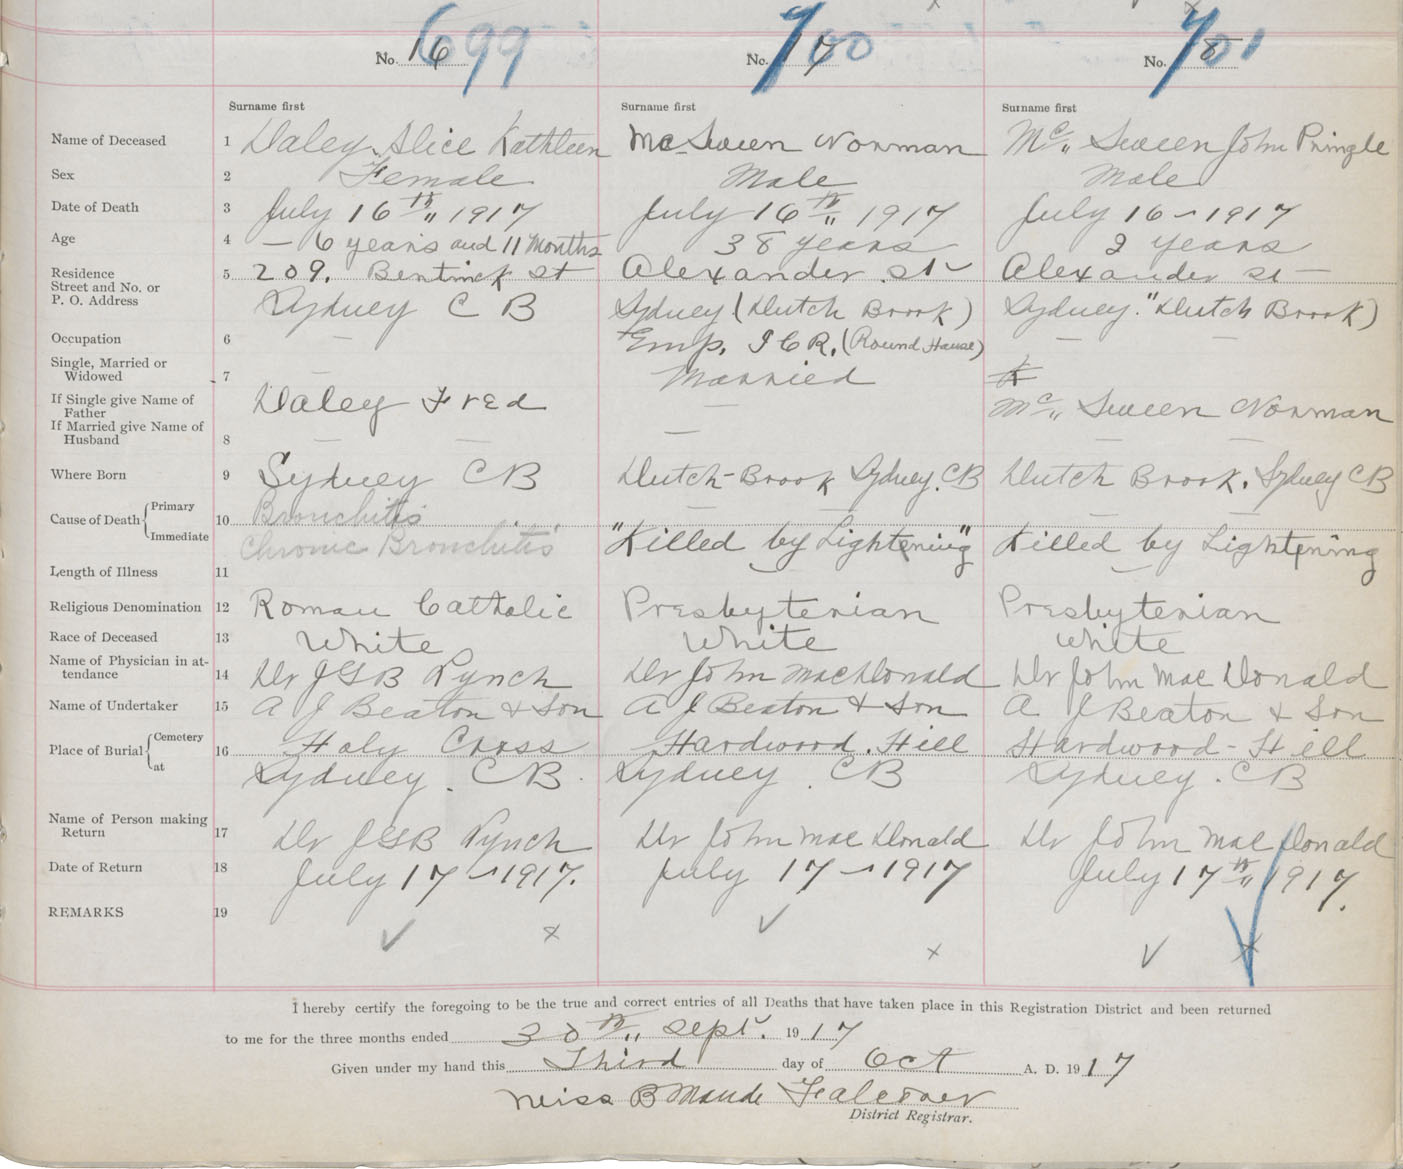 No. 16 699
No. 17 700
No. 18 701
Surname first Surname first Surname first
Name of Deceased 1 Daley Alice Kathleen Mc Sween Norman Mc„ Sween John Pringle
Sex 2 Female Male Male
Date of Death 3 July 16th„ 1917 July 16th„ 1917 July 16 - 1917
Age 4 - 6 years and 11 Months 38 years 2 years
Residence 5 209. Bentinck St Alexander St Alexander St -
Street and No. or
P. O. Address Sydney C B Sydney (Dutch Brook) Sydney. "Dutch Brook)
Occupation 6 — Emp. I C R. (Round House) — —
Single, Married or
Widowed 7 — Married
If Single give Name of
Father Daley Fred — Mc„ Sween Norman
If Married give Name of
Husband 8 — — — — —
Where Born 9 Sydney C B Dutch-Brook Sydney. CB Dutch Brook. Sydney CB
Cause of Death { Primary 10 Bronchitis — — — —
Immediate Chronic Bronchitis "Killed by Lightening" Killed by Lightening
Length of Illness 11
Religious Denomination 12 Roman Catholic Presbyterian Presbyterian
Race of Deceased 13 White White White
Name of Physician in at-
tendance 14 Dr J G B Lynch Dr John MacDonald Dr John Mac Donald
Name of Undertaker 15 A J Beaton & Son A J Beaton & Son A J Beaton & Son
Place of Burial { Cemetery 16 Holy Cross Hardwood. Hill Hardwood - Hill
at Sydney. CB. Sydney. CB Sydney. CB
Name of Person making
Return 17 Dr J G B Lynch Dr John Mac Donald Dr John Mac Donald
Date of Return 18 July 17 - 1917. July 17 - 1917 July 17th„ 1917.
REMARKS 19
✓ x ✓ x ✓ x
I hereby certify the foregoing to be the true and correct entries of all Deaths that have taken place in this Registration District and been returned
to me for the three months ended 30th„ Sept. 1917
Given under my hand this Third day of Oct A. D. 1917
Miss B Maude Falconer
District Registrar.